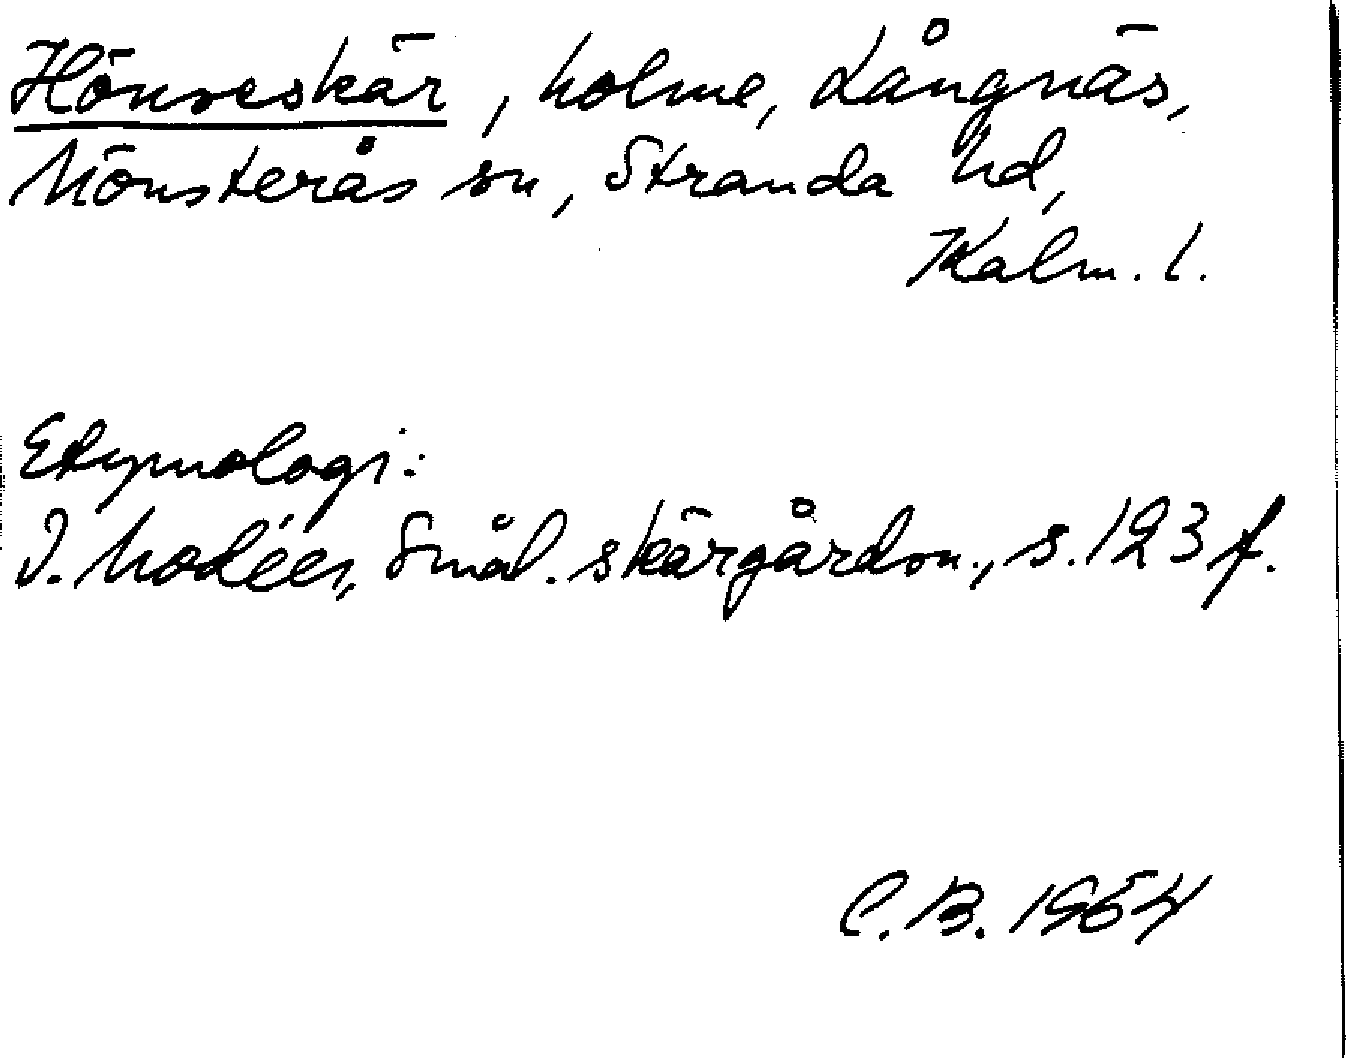 Hönseskär, holme, Långnäs,
Mönsterås sn, Stranda hd,
Kalm. l.
Etymologi:
I. Modéer, Smål. skärgårdsn., s. 123 f.
C. B. 1954